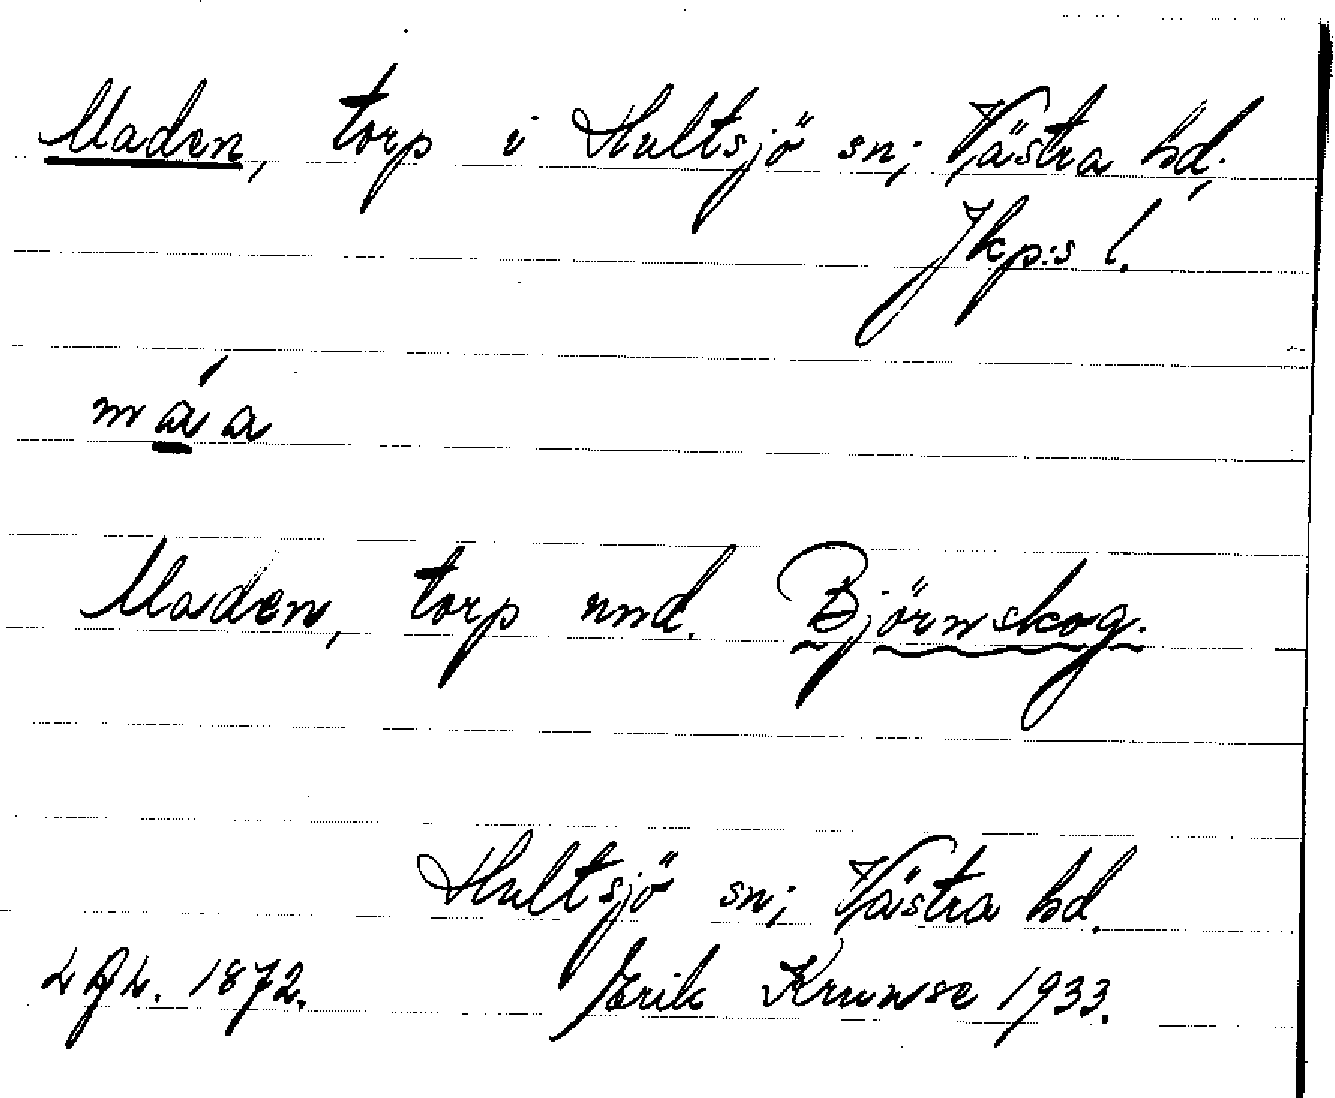 Maden, torp i Hultsjö sn; Västra hd;
Jkp:s l.
máa
Maden, torp und. Björnskog.
Hultsjö sn; Västra hd.
1872. Erik Krunse 1933.